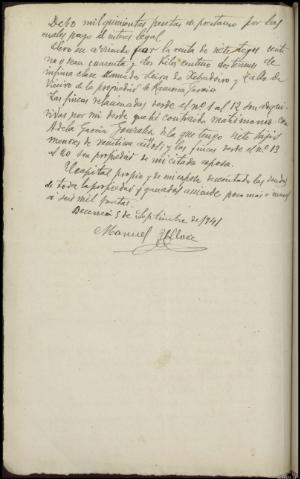 Debo mil quinientas pesetas de prestamo por las
cuales pago el interes legal.
Llevo en arriendo por la renta de siete fegas centeno
o sean cuarenta y dos kilos centeno
infima clase llamado Leiza de
de la propiedad de Ramona García
Las fincas relacionadas desde el nº 1 al 12 son adquiridas
por mi desde que he contraido matrimonio con
Adela García de la que tengo siete hijos
menores de veintiun años, y las fincas desde el nº 13
al 20 son propiedad de mi citada esposa.
El capital propio y de mi esposa descontadas las deudas
de toda la propiedad y ganados asciende poco mas o menos
a seis mil pesetas.
Becerreá 5 de Septiembre de 1941
Manuel